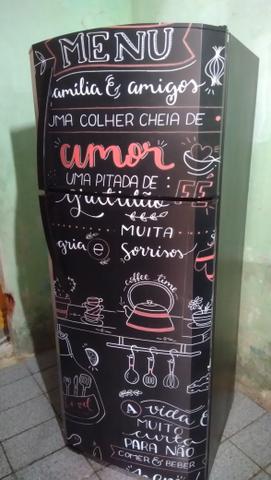 MENU
amilia & amigos
UMA COLHER CHEIA DE
amor
UMA PITADA DE
FÉ
gratidão
MUITA
gria e Sorrisos
coffee time
A vida é
MUITO
curta
PARA NÃO
COMER & BEBER